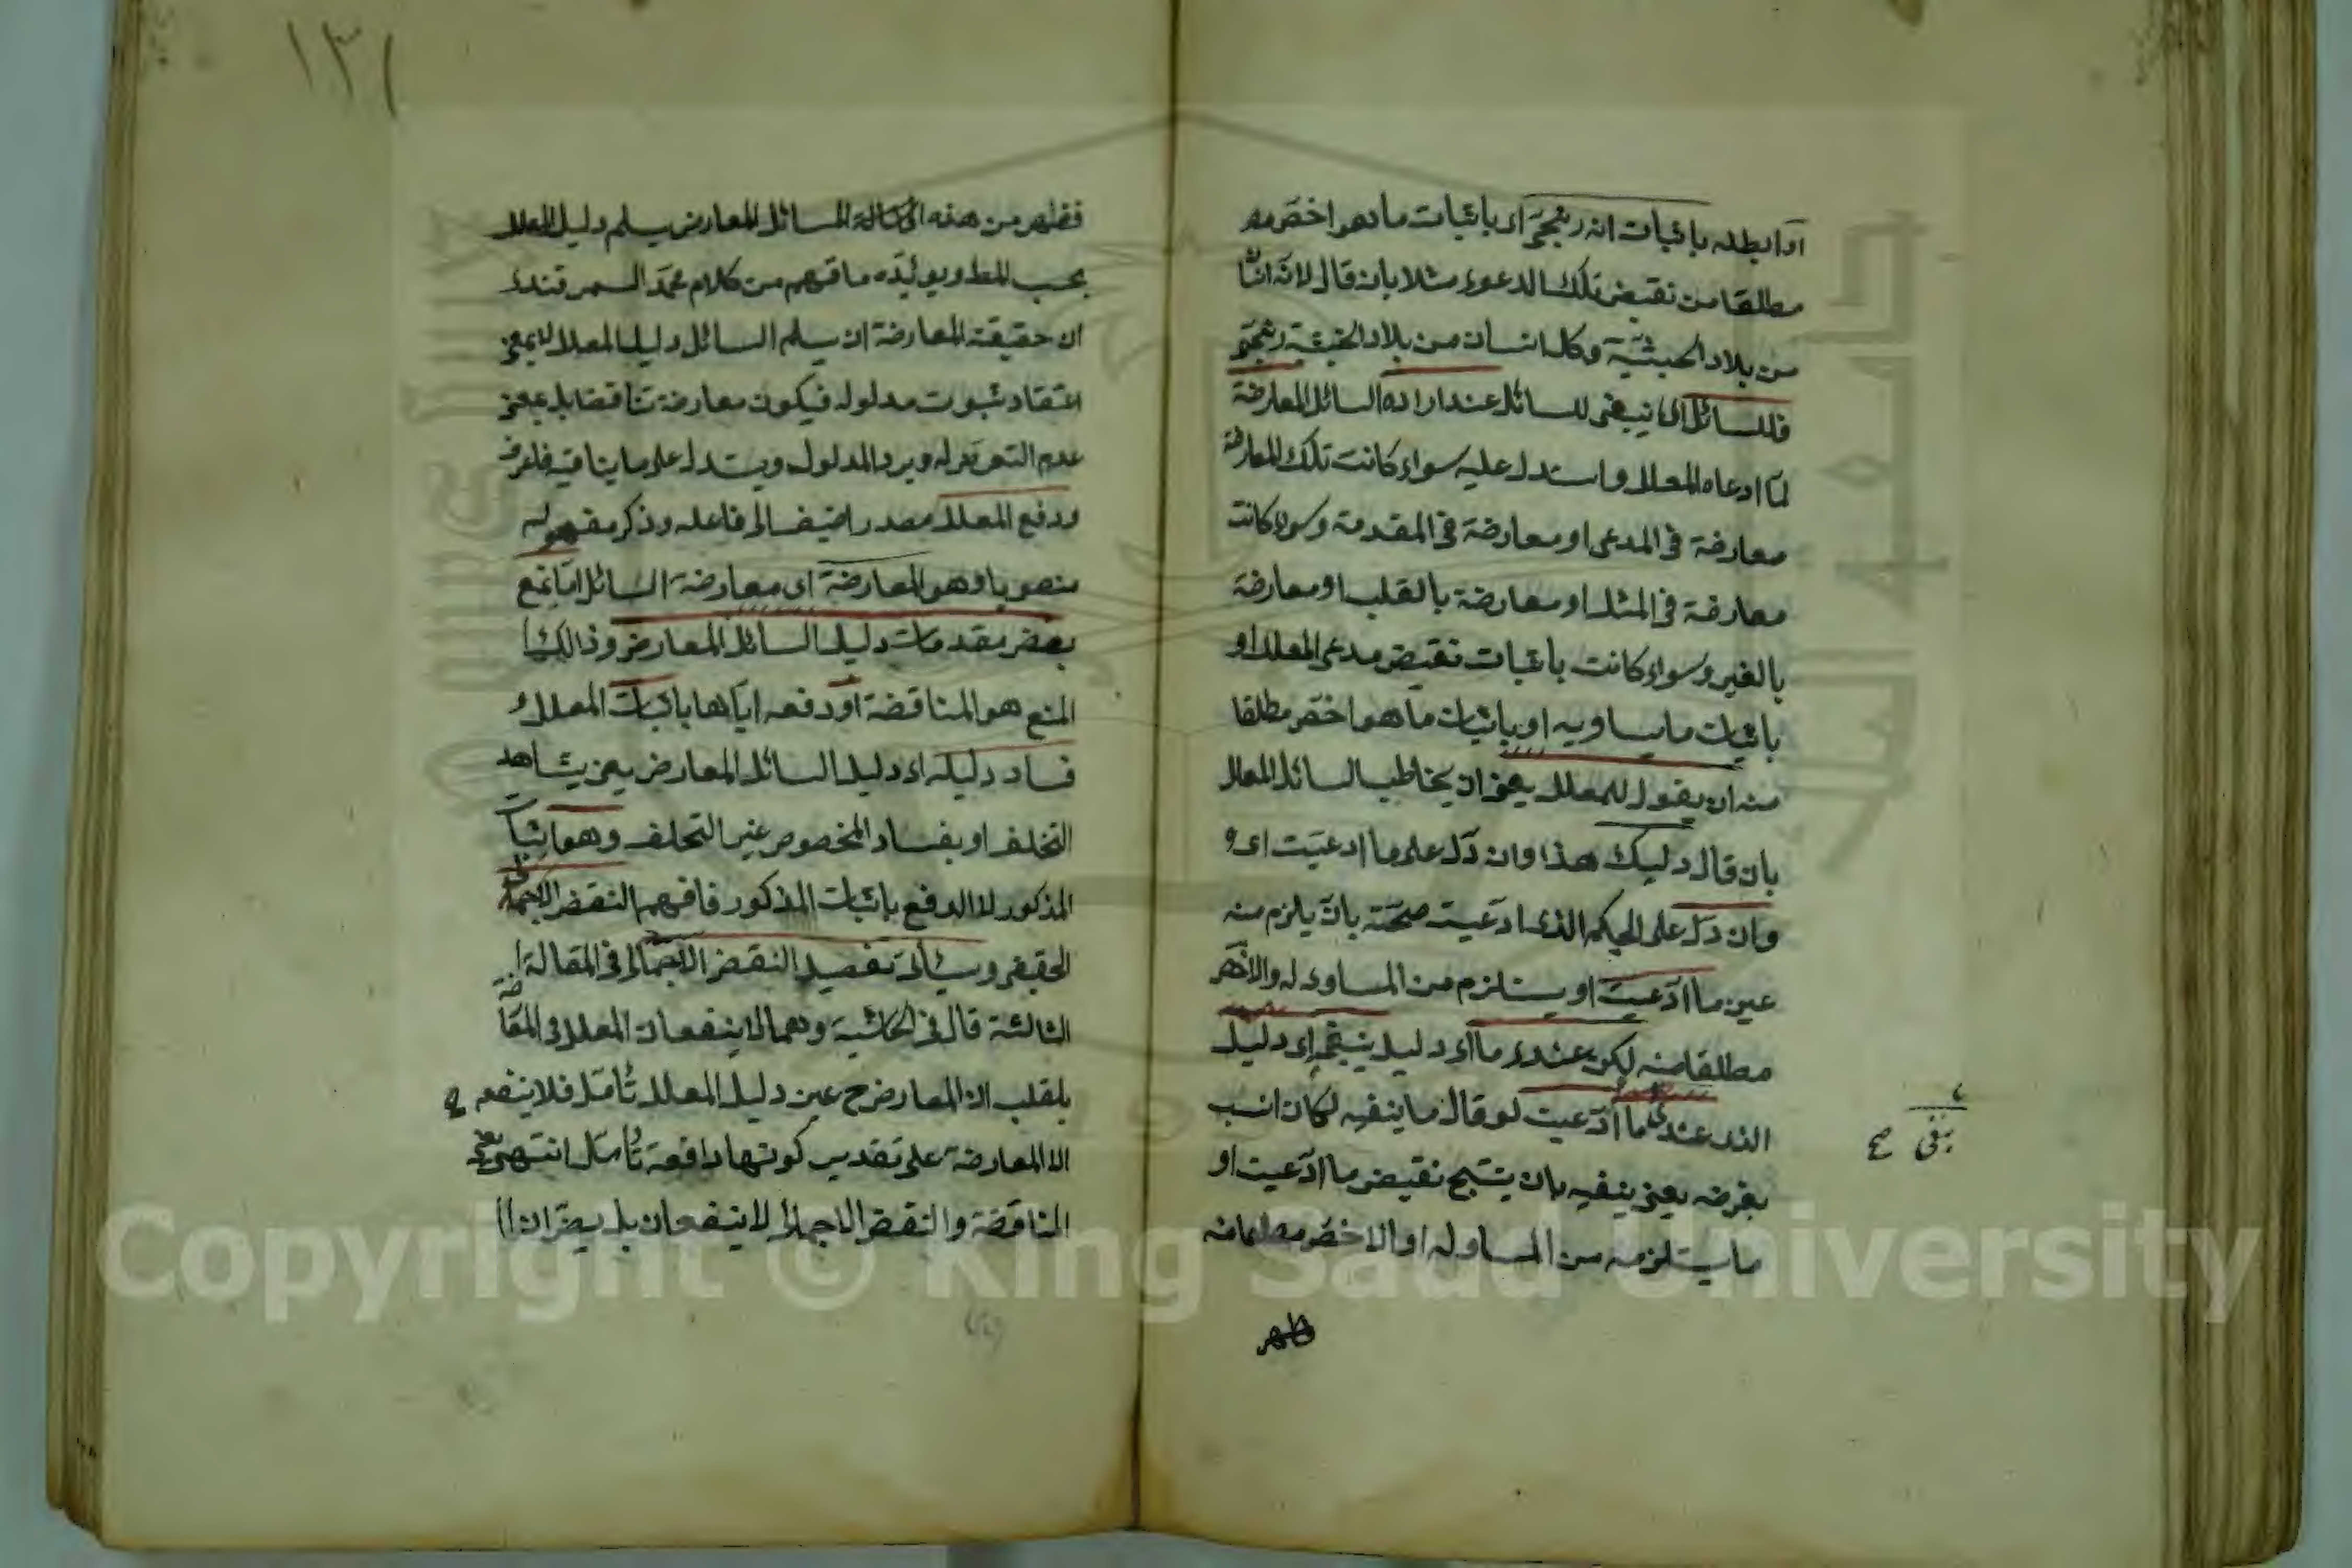 او ابطله باثبات انه زنجي اى باثبات ما هو اخص منه
مطلقا من نقيض تلك الدعوى مثلا بان قال لانه انسان
من بلاد الحبشية وكل انسان من بلاد الحبشية زنجي
فللسائل اى ينبغى للسائل عند ارادة السائل المعارضة
لما ادعاه المعلل واستدل عليه سواء كانت تلك المعارضة
معارضة فى المدعى او معارضة فى المقدمة وسواء كانت
معارضة فى المثل او معارضة بالقلب او معارضة
بالغير وسواء كانت باثبات نقيض مدعى المعلل او
باثبات ما يساويه او باثبات ما هو اخص مطلقا
منه ان يقول للمعلل يعنى ان يخاطب السائل المعلل
بان قال دليلك هذا وان دل على ما ادعيت اى و
وان دل على الحكم الذى ادعيت صحته بان يلزم منه
عين ما ادعيت او يستلزم من المساوى له والاخص
مطلقا منه لكن عندى ما اى دليل ينفيه اى دليل
الذى عندى ما ادعيت لو قال ما ينفيه لكان انسب
بغرضه يعنى ينفيه بان ينتج نقيض ما ادعيت او
ما يستلزمه من المساوى له او الاخص مطلقا منه
بنفى صح
فظهر
١٣١
فظهر من هذه ان السائل المعارض يسلم دليل المعلل
بحسب الظ ويؤيده ما فهم من كلام محمد السمرقندى
ان حقيقة المعارضة ان يسلم السائل دليل المعلل لا بمعنى
اعتقاد ثبوت مدلوله فيكون معارضة تناقضا بل بمعنى
عدم التعرض له ويرد المدلول ويستدل على ما ينافيه فاعرف
ودفع المعلل مصدر اضيف الى فاعله وذكر مفعوله
منصوبا وهو المعارضة اى معارضة السائل اما بمنع
بعض مقدمات دليل السائل المعارض وذالك
المنع هو المناقضة او دفعه اياها باثبات المعلل
فساد دليله اى دليل السائل المعارض يعنى بشاهد
التخلف او بفساد المخصوص غير التخلف وهو اثبات
المذكور لا الدفع باثبات المذكور فافهم النقض الاجمالى
الحقيقى وسيأتى تفصيل النقض الاجمالى فى المقالة
الثالثة قال فى الحاشية وهما لا ينفعان المعلل فى المعارضة
بالقلب اذ المعارض ح عين دليل المعلل تأمل فلا ينفع ح
الا المعارضة على تقدير كونها دافعة تأمل انتهى يعنى
المناقضة والنقض الاجمالى لا ينفعان بل يضران